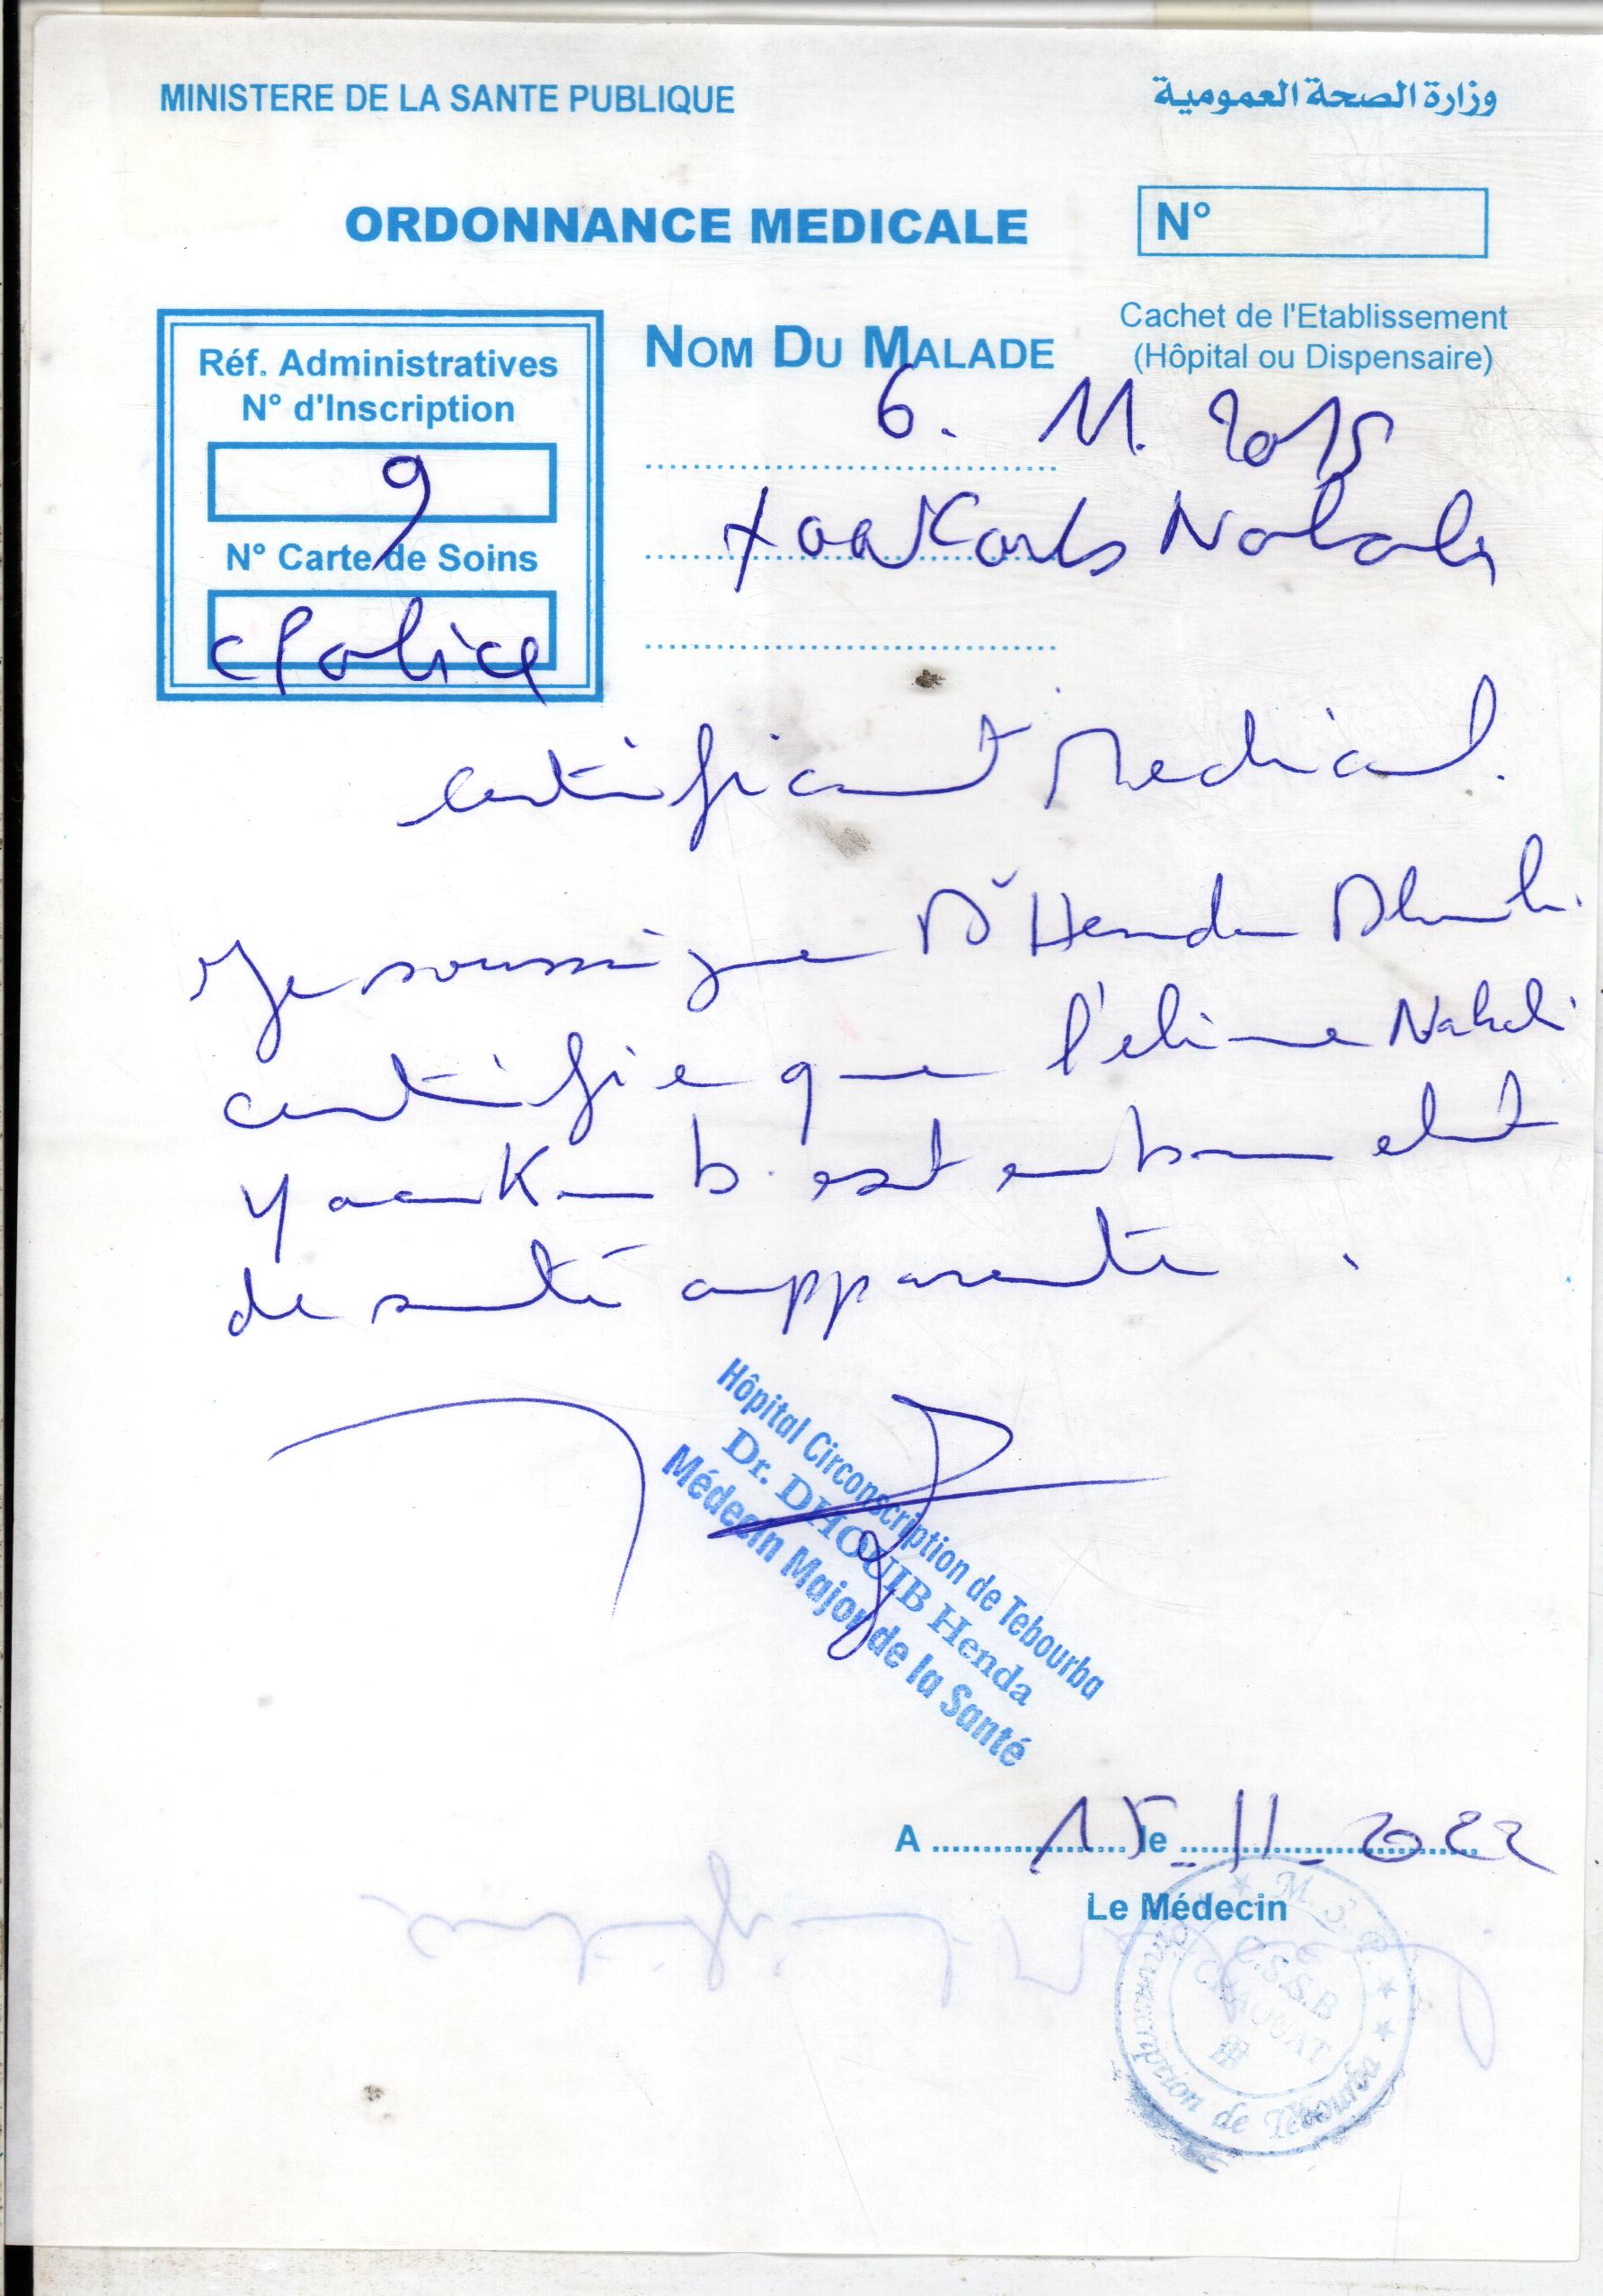 MINISTERE DE LA SANTE PUBLIQUE
وزارة الصحة العمومية
ORDONNANCE MEDICALE
N°
Réf. Administratives
N° d'Inscription
9
N° Carte de Soins
Police
NOM DU MALADE
Cachet de l'Etablissement
(Hôpital ou Dispensaire)
6. 11. 2015
certificat Medical.
Je soussigne Dr Henda
certifie que l'eleve
Yaakoub est en bon etat
de santé apparente.
Hôpital Circonscription de Tebourba
Dr. DHOUIB Henda
Médecin Major de la Santé
A 15 le 11 2022
Le Médecin
M.S.P.
C.S.S.B
CHAOUAT
Circonscription de Tebourba